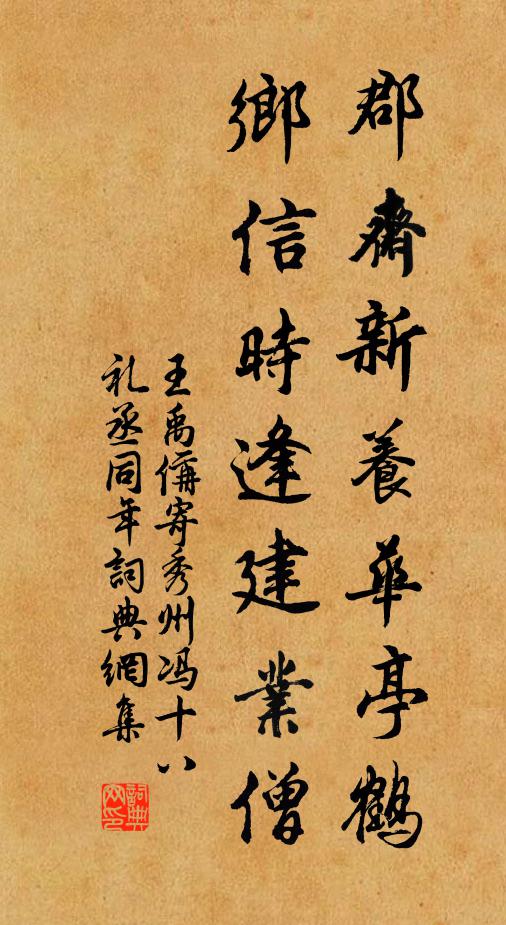 郡齋新養華亭鶴
鄉信時逢建業僧
王禹偁寄秀州馮十八
礼丞同年詞典網集
詞典網印